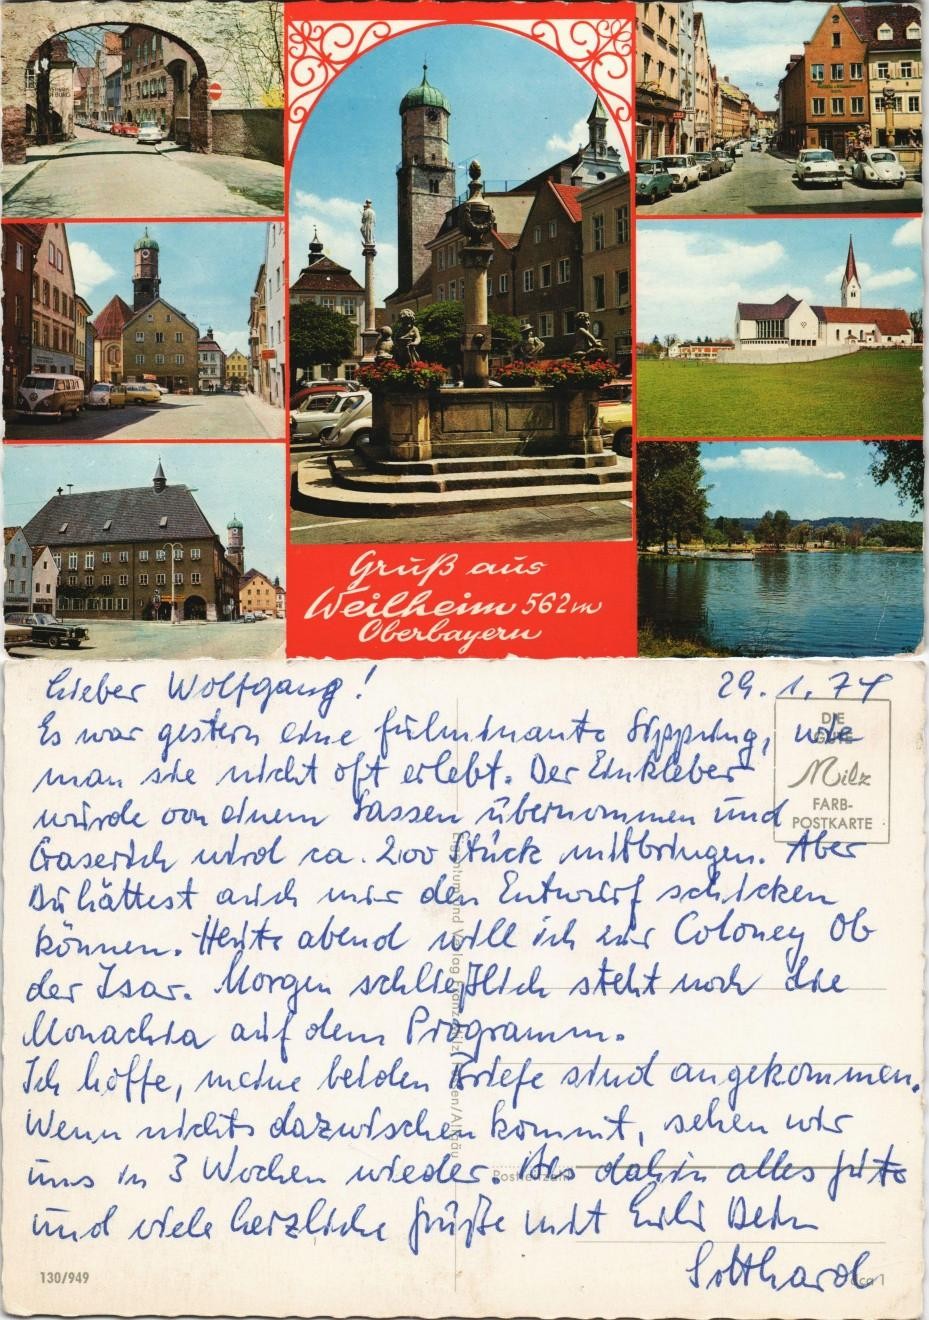 Gruß aus
Weilheim 562m
Oberbayern
Lieber Wolfgang!
29.1.74
Es war gestern eine fulminante Sippung, wie
man sie nicht oft erlebt. Der Einkleber
wurde von einem Sassen übernommen und
wird ca. 200 Stück mitbringen. Aber
Du hättest auch mir den Entwurf schicken
können. Heute abend will ich zur Coloney Ob
der Isar. Morgen schließlich steht noch die
Monachia auf dem Programm.
Ich hoffe, meine beiden Briefe sind angekommen.
Wenn nichts dazwischen kommt, sehen wir
uns in 3 Wochen wieder. Bis dahin alles Gute
und viele herzliche Grüße mit Dein
Gotthard
DIE
GUTE
Milz
FARB-
POSTKARTE
Postleitzahl
130/949